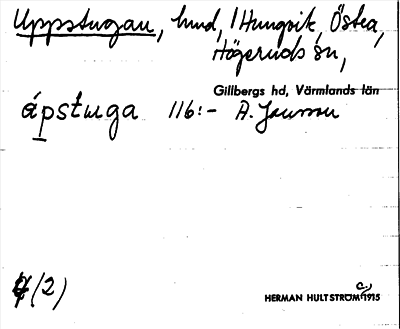 Uppstugan, hmd, i Hungvik, Östra,
Högeruds sn,
Gillbergs hd, Värmlands län
ápstuga 116:- A. Jansson
(2)
HERMAN HULTSTRÖM 1915